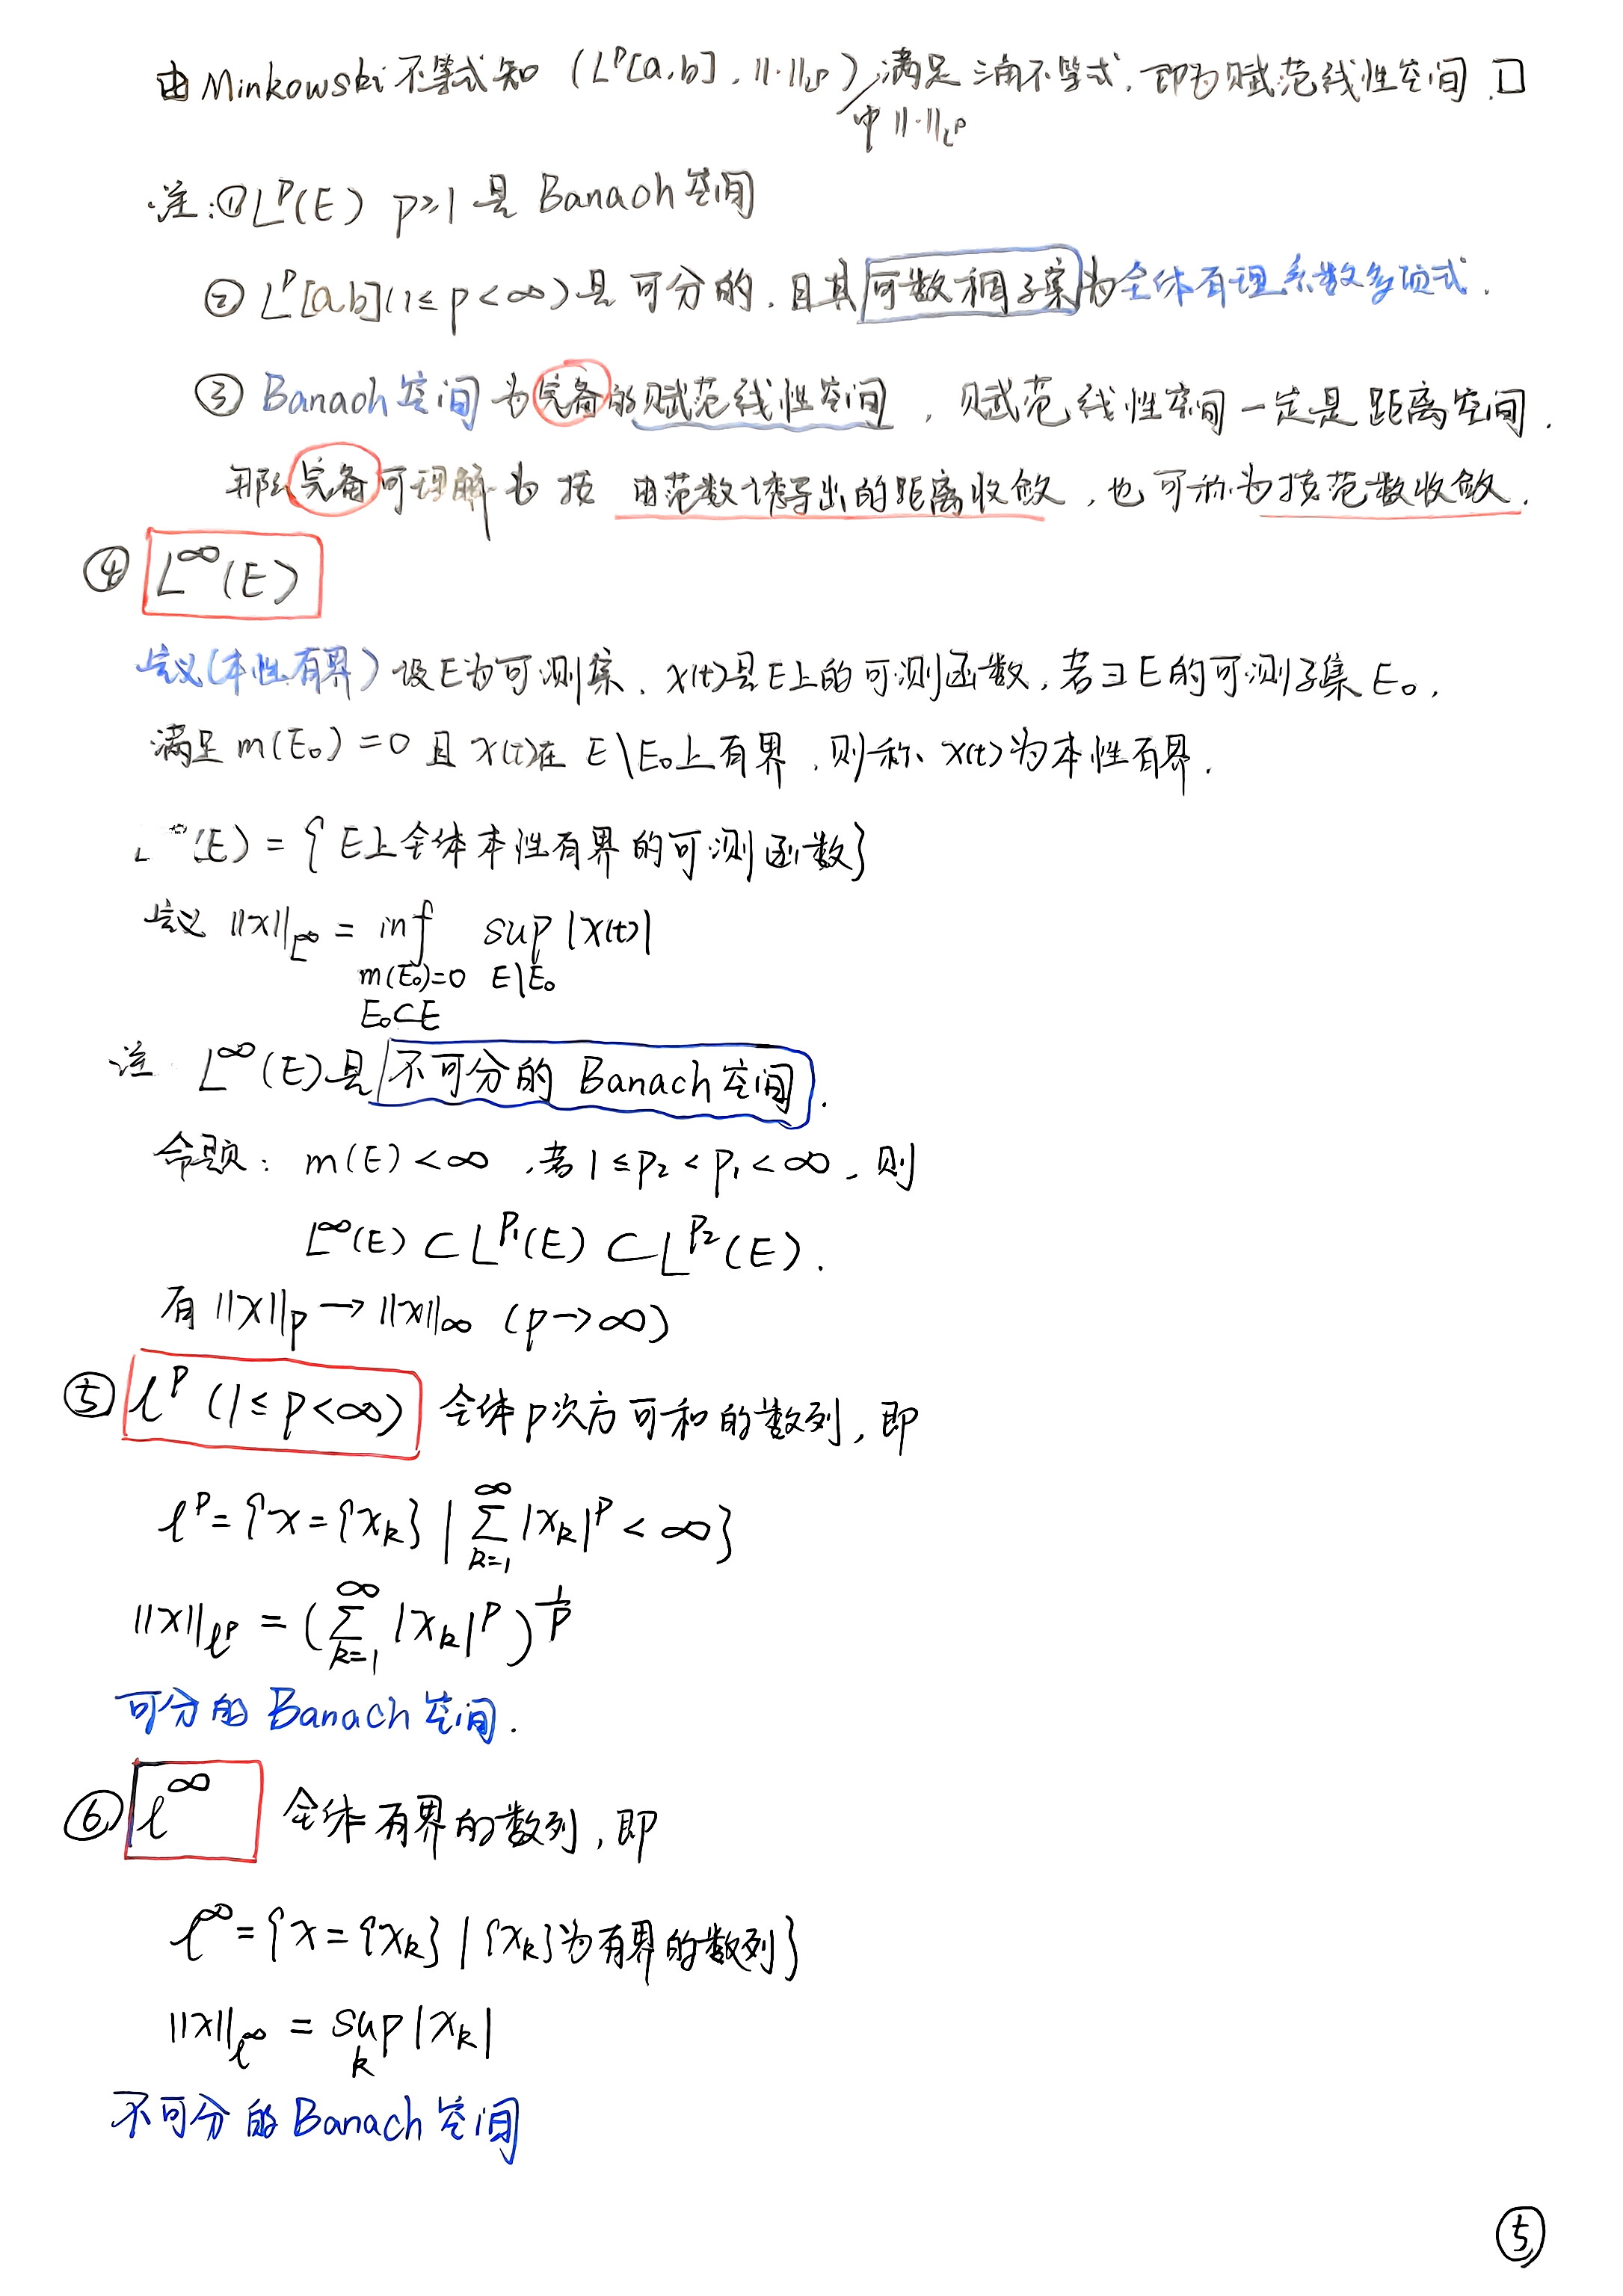 由Minkowski不等式知 (L^p[a,b], ||·||_{L^p}) 满足三角不等式, 即为赋范线性空间. □
中 ||·||_{L^p}
注: ① L^p(E) p≥1 是 Banach 空间
② L^p[a,b](1≤p<∞)是可分的, 且其可数稠子集为全体有理系数多项式.
③ Banach空间为完备的赋范线性空间, 赋范线性空间一定是距离空间.
那么完备可理解为按由范数诱导出的距离收敛, 也可称为按范数收敛.
④ L^∞(E)
定义(本性有界) 设E为可测集, x(t)是E上的可测函数, 若∃E的可测子集E₀,
满足 m(E₀)=0 且 x(t)在 E\E₀上有界, 则称 x(t)为本性有界.
L^∞(E) = { E上全体本性有界的可测函数}
定义 ||x||_{L^∞} = inf sup |x(t)|
m(E₀)=0 E\E₀
E₀⊂E
注 L^∞(E)是不可分的 Banach空间.
命题: m(E)<∞, 若 1≤p₂<p₁<∞, 则
L^∞(E) ⊂ L^{p₁}(E) ⊂ L^{p₂}(E).
有 ||x||_p → ||x||_∞ (p→∞)
⑤ l^p (1≤p<∞) 全体p次方可和的数列, 即
l^p = {x={x_k} | ∑_{k=1}^∞ |x_k|^p < ∞}
||x||_{l^p} = (∑_{k=1}^∞ |x_k|^p)^{1/p}
可分的 Banach 空间.
⑥ l^∞ 全体有界的数列, 即
l^∞ = {x={x_k} | {x_k}为有界的数列}
||x||_{l^∞} = sup_k |x_k|
不可分的 Banach 空间
⑤